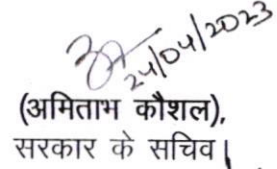 24/04/2023
(अमिताभ कौशल),
सरकार के सचिव।